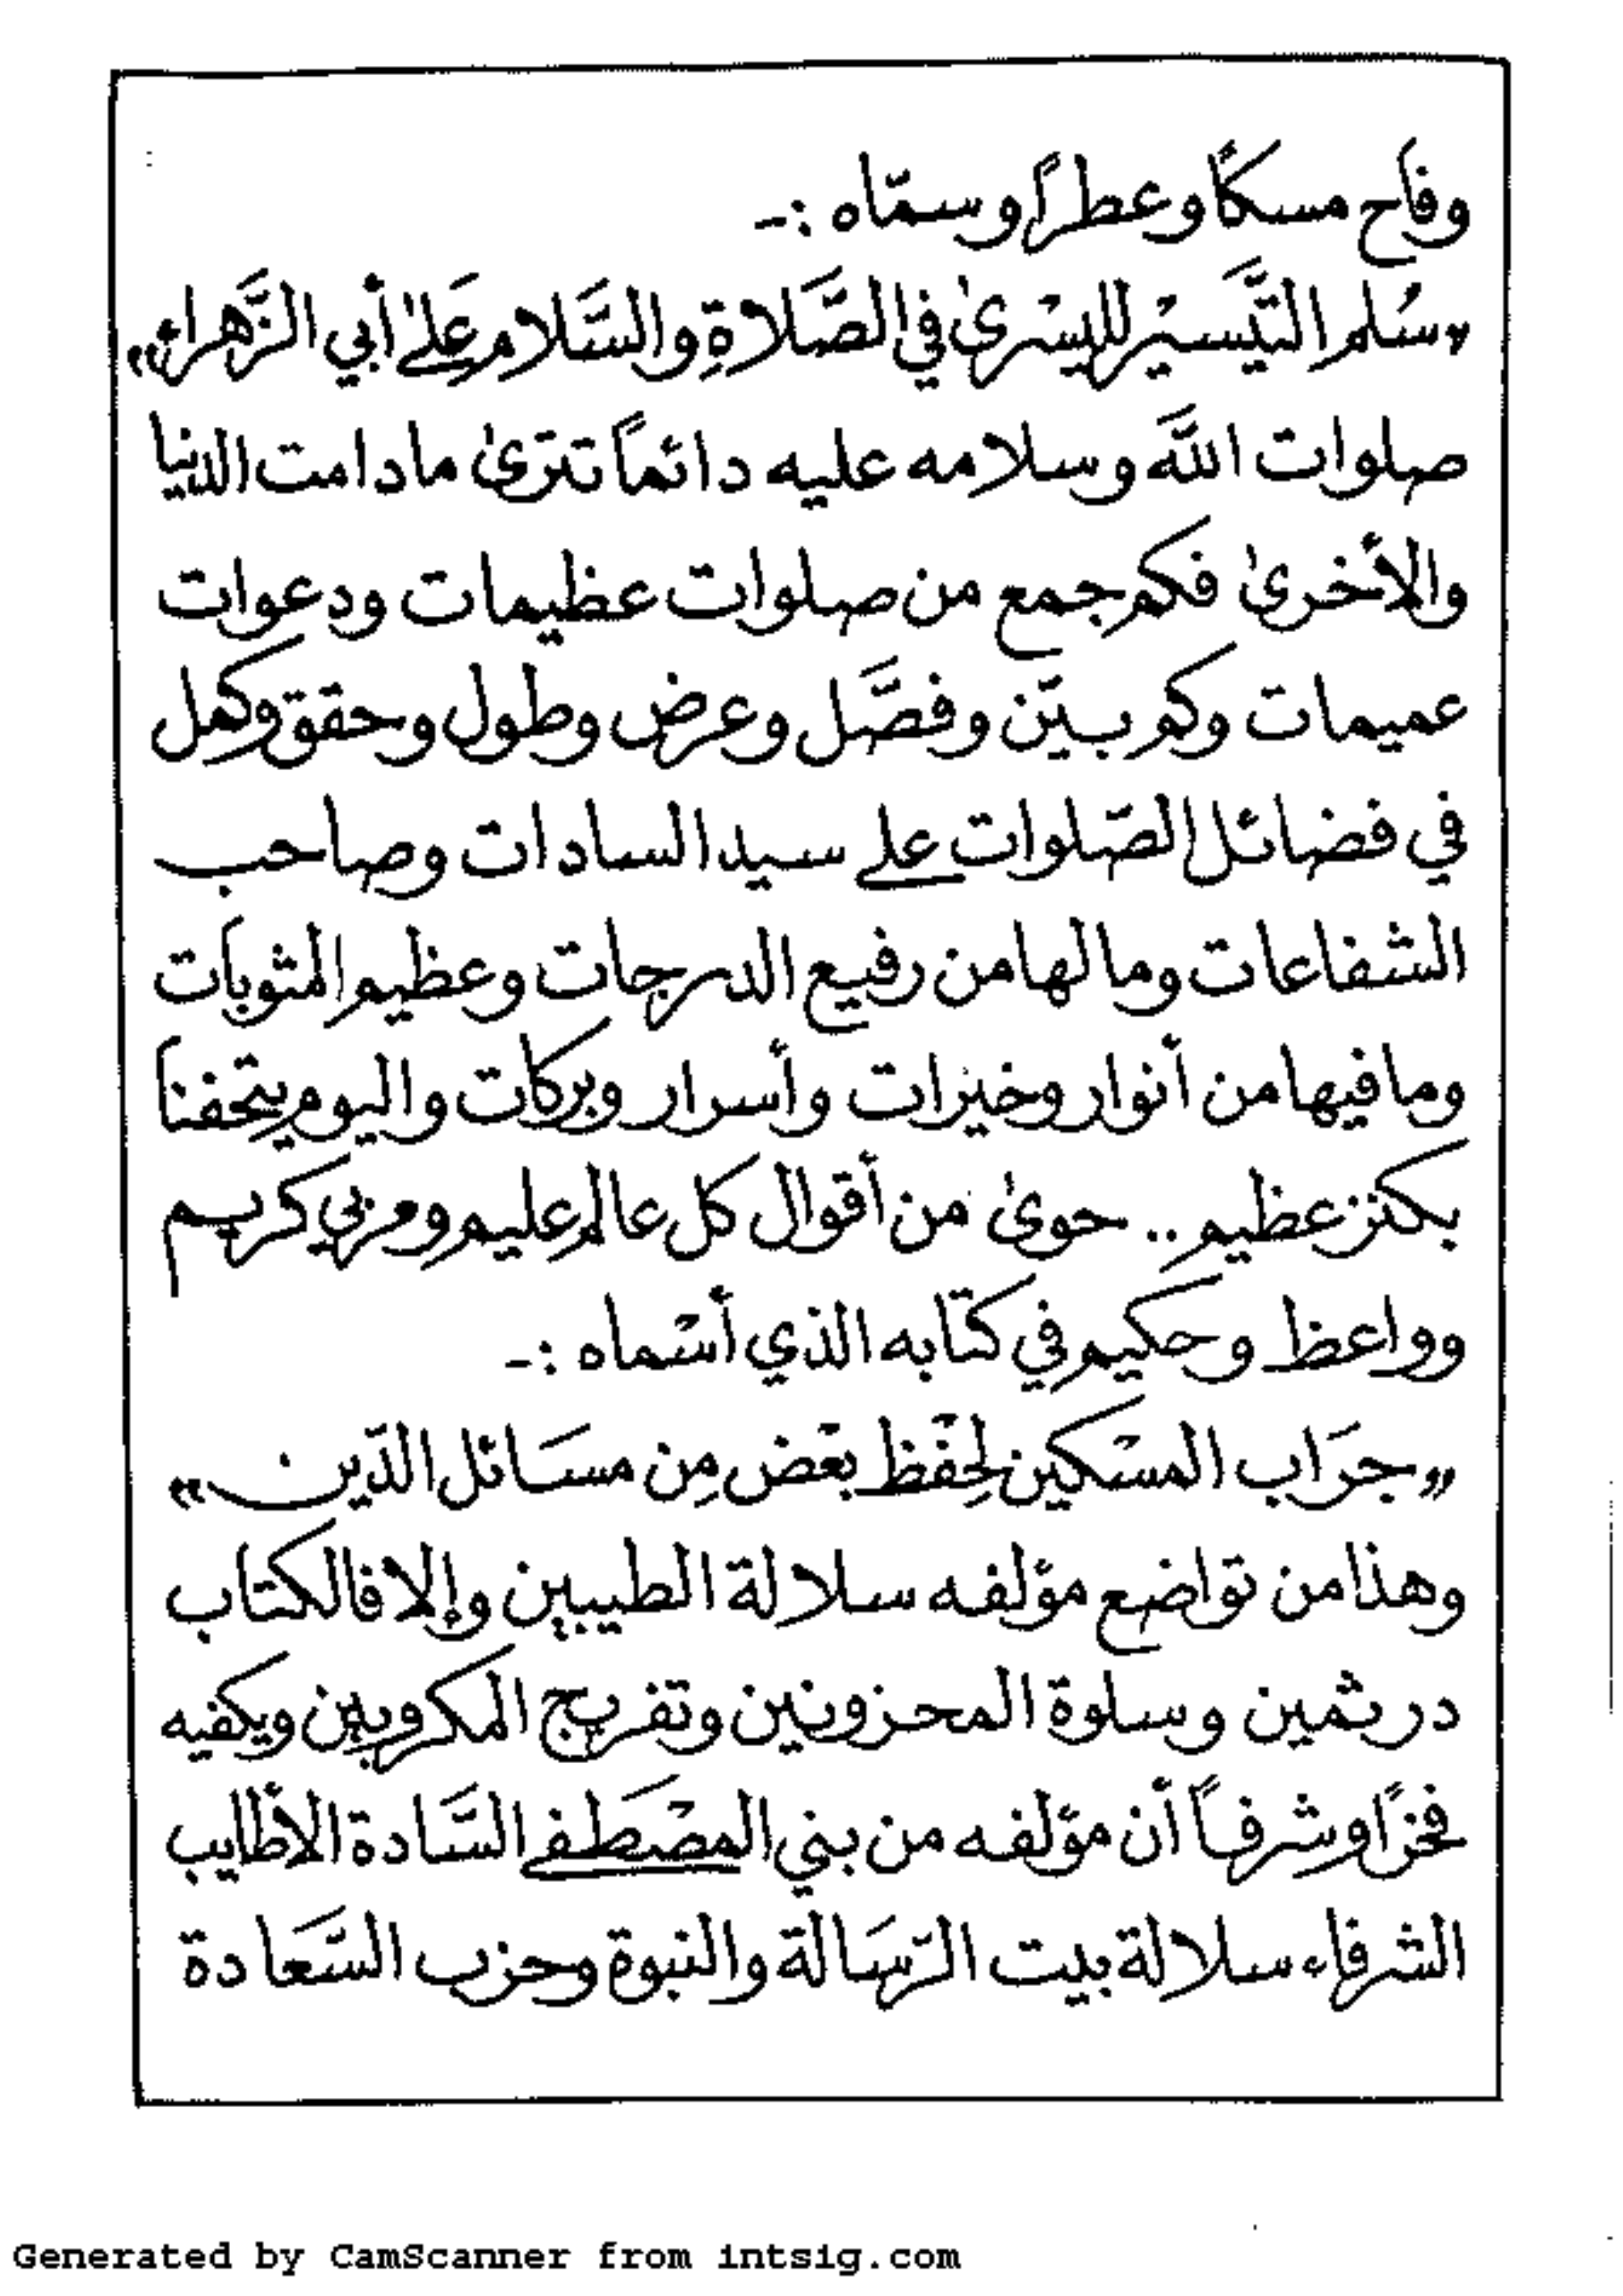 وفاح مسكاً وعطراً وسمّاه :-
«سُلم التَّيسيْر لليسْرىٰ في الصَّلاةِ والسَّلام عَلىٰ أبي الزَّهراء»
صلوات اللَّه وسلامه عليه دائماً تترىٰ مادامت الدنيا
والأخرىٰ فكم جمع من صلوات عظيمات ودعوات
عميمات وكم بيّن وفصَّل وعرض وطول وحقق وكمل
في فضائل الصّلوات على سيد السادات وصاحب
الشفاعات ومالها من رفيع الدرجات وعظيم المثوبات
ومافيها من أنوار وخيرات وأسرار وبركات واليوم يتحفنا
بكنز عظيم .. حوىٰ من أقوال كل عالم عليم ومربي كريم
وواعظ وحكيم في كتابه الذي أسْماه :-
«جرَاب المسْكين لِحفْظ بعْض مِن مسَائل الدّين»
وهذا من تواضع مؤلفه سلالة الطيبين وإلا فالكتاب
در ثمين وسلوة المحزونين وتفريج المكروبين ويكفيه
فخرًا وشرفاً أن مؤلفه من بني المصْطَفى السَّادة الأطايب
الشرفاء سلالة بيت الرّسَالة والنبوة وحزب السَّعادة
Generated by CamScanner from intsig.com